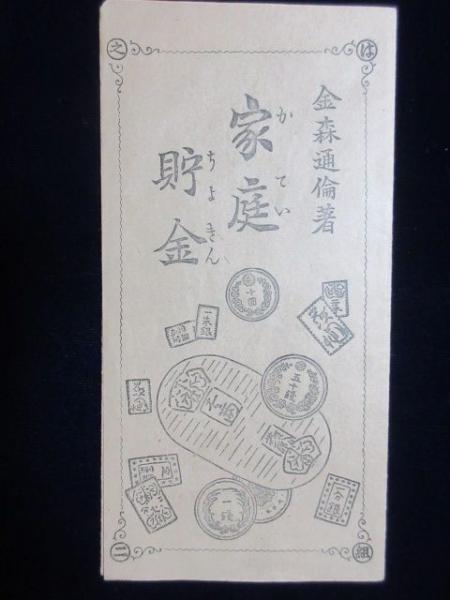 は
組
之
二
金森通倫著
家庭
かてい
貯金
ちよきん
一朱銀
五十錢
一分銀
一錢